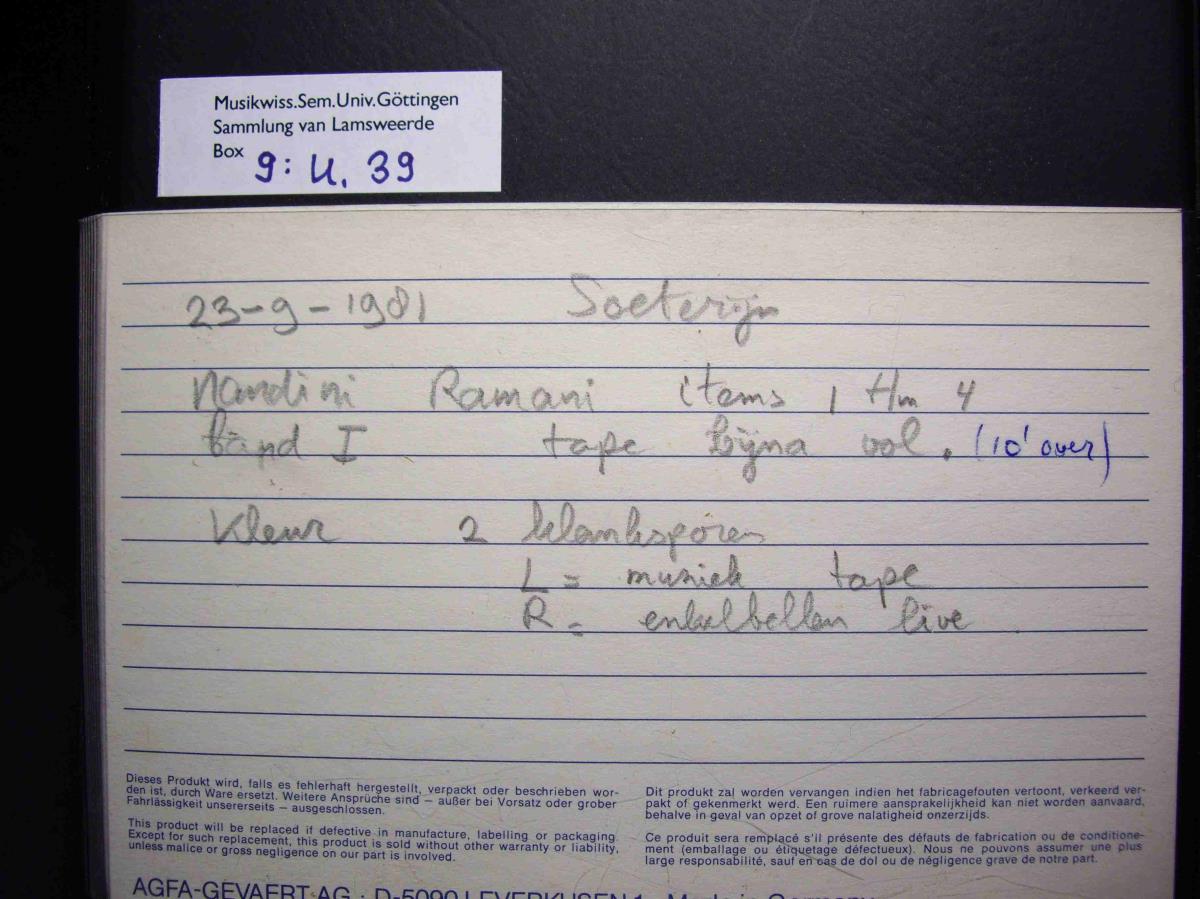 Musikwiss.Sem.Univ.Göttingen
Sammlung van Lamsweerde
Box 9: U. 39
23-9-1981 Soeterijn
Nandini Ramani items 1 t/m 4
band I tape bijna vol. (10' over)
Kleur 2 klanksporen
L = muziek tape
R = enkelbellen live
Dieses Produkt wird, falls es fehlerhaft hergestellt, verpackt oder beschrieben wor-
den ist, durch Ware ersetzt. Weitere Ansprüche sind – außer bei Vorsatz oder grober
Fahrlässigkeit unsererseits – ausgeschlossen.
This product will be replaced if defective in manufacture, labelling or packaging.
Except for such replacement, this product is sold without other warranty or liability,
unless malice or gross negligence on our part is involved.
Dit produkt zal worden vervangen indien het fabricagefouten vertoont, verkeerd ver-
pakt of gekenmerkt werd. Een ruimere aansprakelijkheid kan niet worden aanvaard,
behalve in geval van opzet of grove nalatigheid onzerzijds.
Ce produit sera remplacé s'il présente des défauts de fabrication ou de conditionne-
ment (emballage ou étiquetage défectueux). Nous ne pouvons assumer une plus
large responsabilité, sauf en cas de dol ou de négligence grave de notre part.
AGFA-GEVAERT AG · D-5090 LEVERKUSEN 1 · Made in Germany